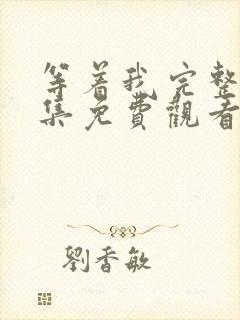 等着我完整
集免費觀看
劉香敏